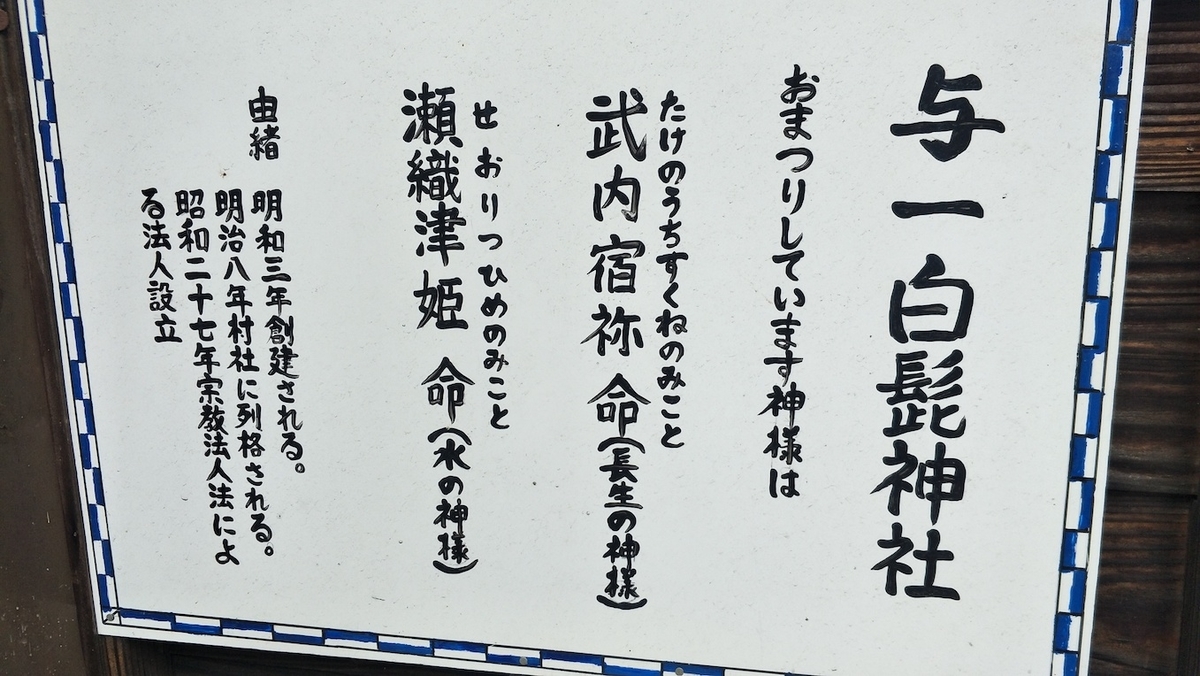 与一白髭神社
おまつりしています神様は
たけのうちすくねのみこと
武内宿祢 命(長生の神様)
せおりつひめのみこと
瀬織津姫 命(水の神様)
由緒 明和三年創建される。
明治八年村社に列格される。
昭和二十七年宗教法人法によ
る法人設立